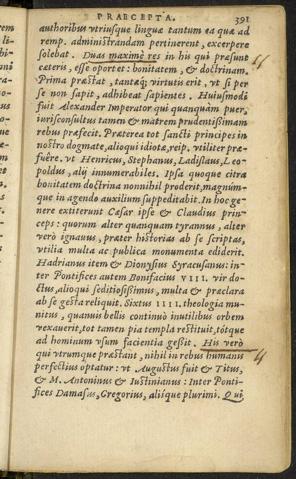 PRAECEPTA. 391
authoribus vtriusque linguæ tantum ea quæ ad
remp. administrandam pertinerent, excerpere
solebat. Duas maximè res in his qui præsunt
cæteris, esse oportet: bonitatem, & doctrinam.
Prima præstat, tantæq; virtutis erit, vt si per
se non sapit, adhibeat sapientes. Huiusmodi
fuit Alexander Imperator qui quanquam puer,
iurisconsultus tamen & matrem prudentissimam
rebus præfecit. Præterea tot sancti principes in
nostro dogmate, alioqui idiotæ, reip. vtiliter præ-
fuêre. vt Henricus, Stephanus, Ladislaus, Leo-
poldus, alij innumerabiles. Ipsa quoque citra
bonitatem doctrina nonnihil proderit, magnúm-
que in agendo auxilium suppeditabit. In hoc ge-
nere extiterunt Cæsar ipse & Claudius prin-
ceps: quorum alter quanquam tyrannus, alter
verò ignauus, præter historias ab se scriptas,
vtilia multa ac publica monumenta ediderit.
Hadrianus item & Dionysius Syracusanus: in-
ter Pontifices autem Bonifacius VIII. vir do-
ctus, alioqui seditiosissimus, multa & præclara
ab se gesta reliquit. Sixtus IIII. theologia mu-
nitus, quanuis bellis continuò inutilibus orbem
vexauerit, tot tamen pia templa restituit, tótque
ad hominum vsum facientia gessit. His verò
qui vtrumque præstant, nihil in rebus humanis
perfectius optatur: vt Augustus fuit & Titus,
& M. Antoninus & Iustinianus: Inter Ponti-
fices Damasus, Gregorius, aliíque plurimi. Qui